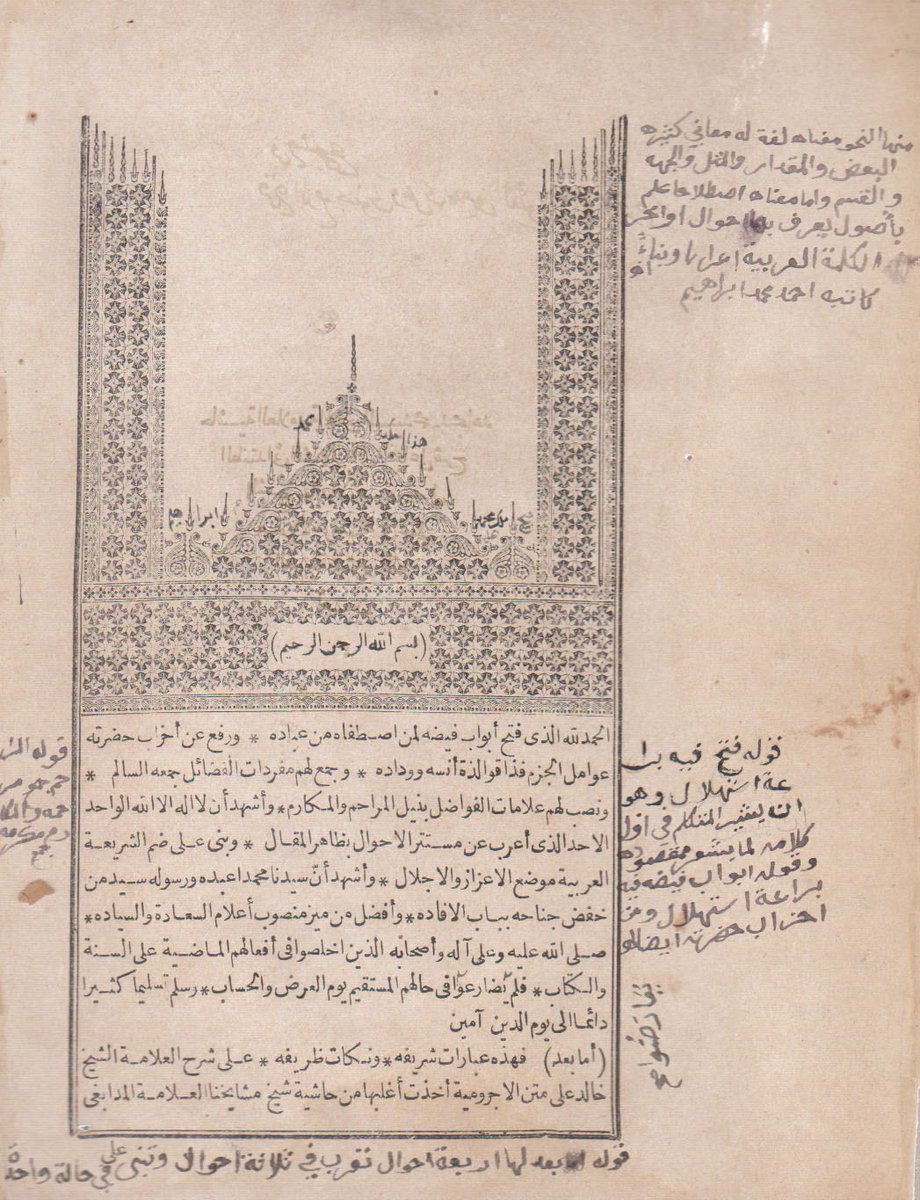 منها النحو معناه لغة له معاني كثيره
البعض والمقدار والمثل والجهه
والقسم واما معناه اصطلاحا علم
بأصول يعرف بها احوال اواخر
الكلمة العربية اعرابا وبناءً
كاتبه احمد محمد ابراهيم
(بسم الله الرحمن الرحيم)
الحمد لله الذى فتح أبواب فيضه لمن اصطفاه من عباده * ورفع عن أحزاب حضرته
عوامل الجزم فذاقوا لذة أنسه ووداده * وجمع لهم مفردات الفضائل جمعه السالم *
ونصب لهم علامات الفواضل بنيل المراحم والمكارم * وأشهد أن لا اله الا الله الواحد
الاحد الذى أعرب عن مستتر الاحوال بظاهر المقال * وبنى على ضم الشريعة
العربية موضع الاعزاز والاجلال * وأشهد أنّ سيدنا محمدا عبده ورسوله سيد من
خفض جناحه بباب الافاده * وأفضل من ميز منصوب أعلام السعادة والسياده *
صلى الله عليه وعلى آله وأصحابه الذين اخلصوا فى أفعالهم الماضية على السنة
والكتاب * فلم يضارعوا فى حالهم المستقيم يوم العرض والحساب * وسلم تسليما كثيرا
دائما الى يوم الدين آمين
(أما بعد) فهذه عبارات شريفه * ونكات ظريفه * على شرح العلامة الشيخ
خالد على متن الاجرومية أخذت أغلبها من حاشية شيخ مشايخنا العلامة المدابغى
قوله فتح فيه برا
عة استهلال وهو
ان يشير المتكلم في اول
كلامه لما يشير مقصوده
وقوله ابواب فيضه فيه
براعة استهلال ومن
احزاب حضرته ايضا
قوله اما بعد لها اربعة احوال تعرب في ثلاثة احوال وتبنى في حالة واحدة